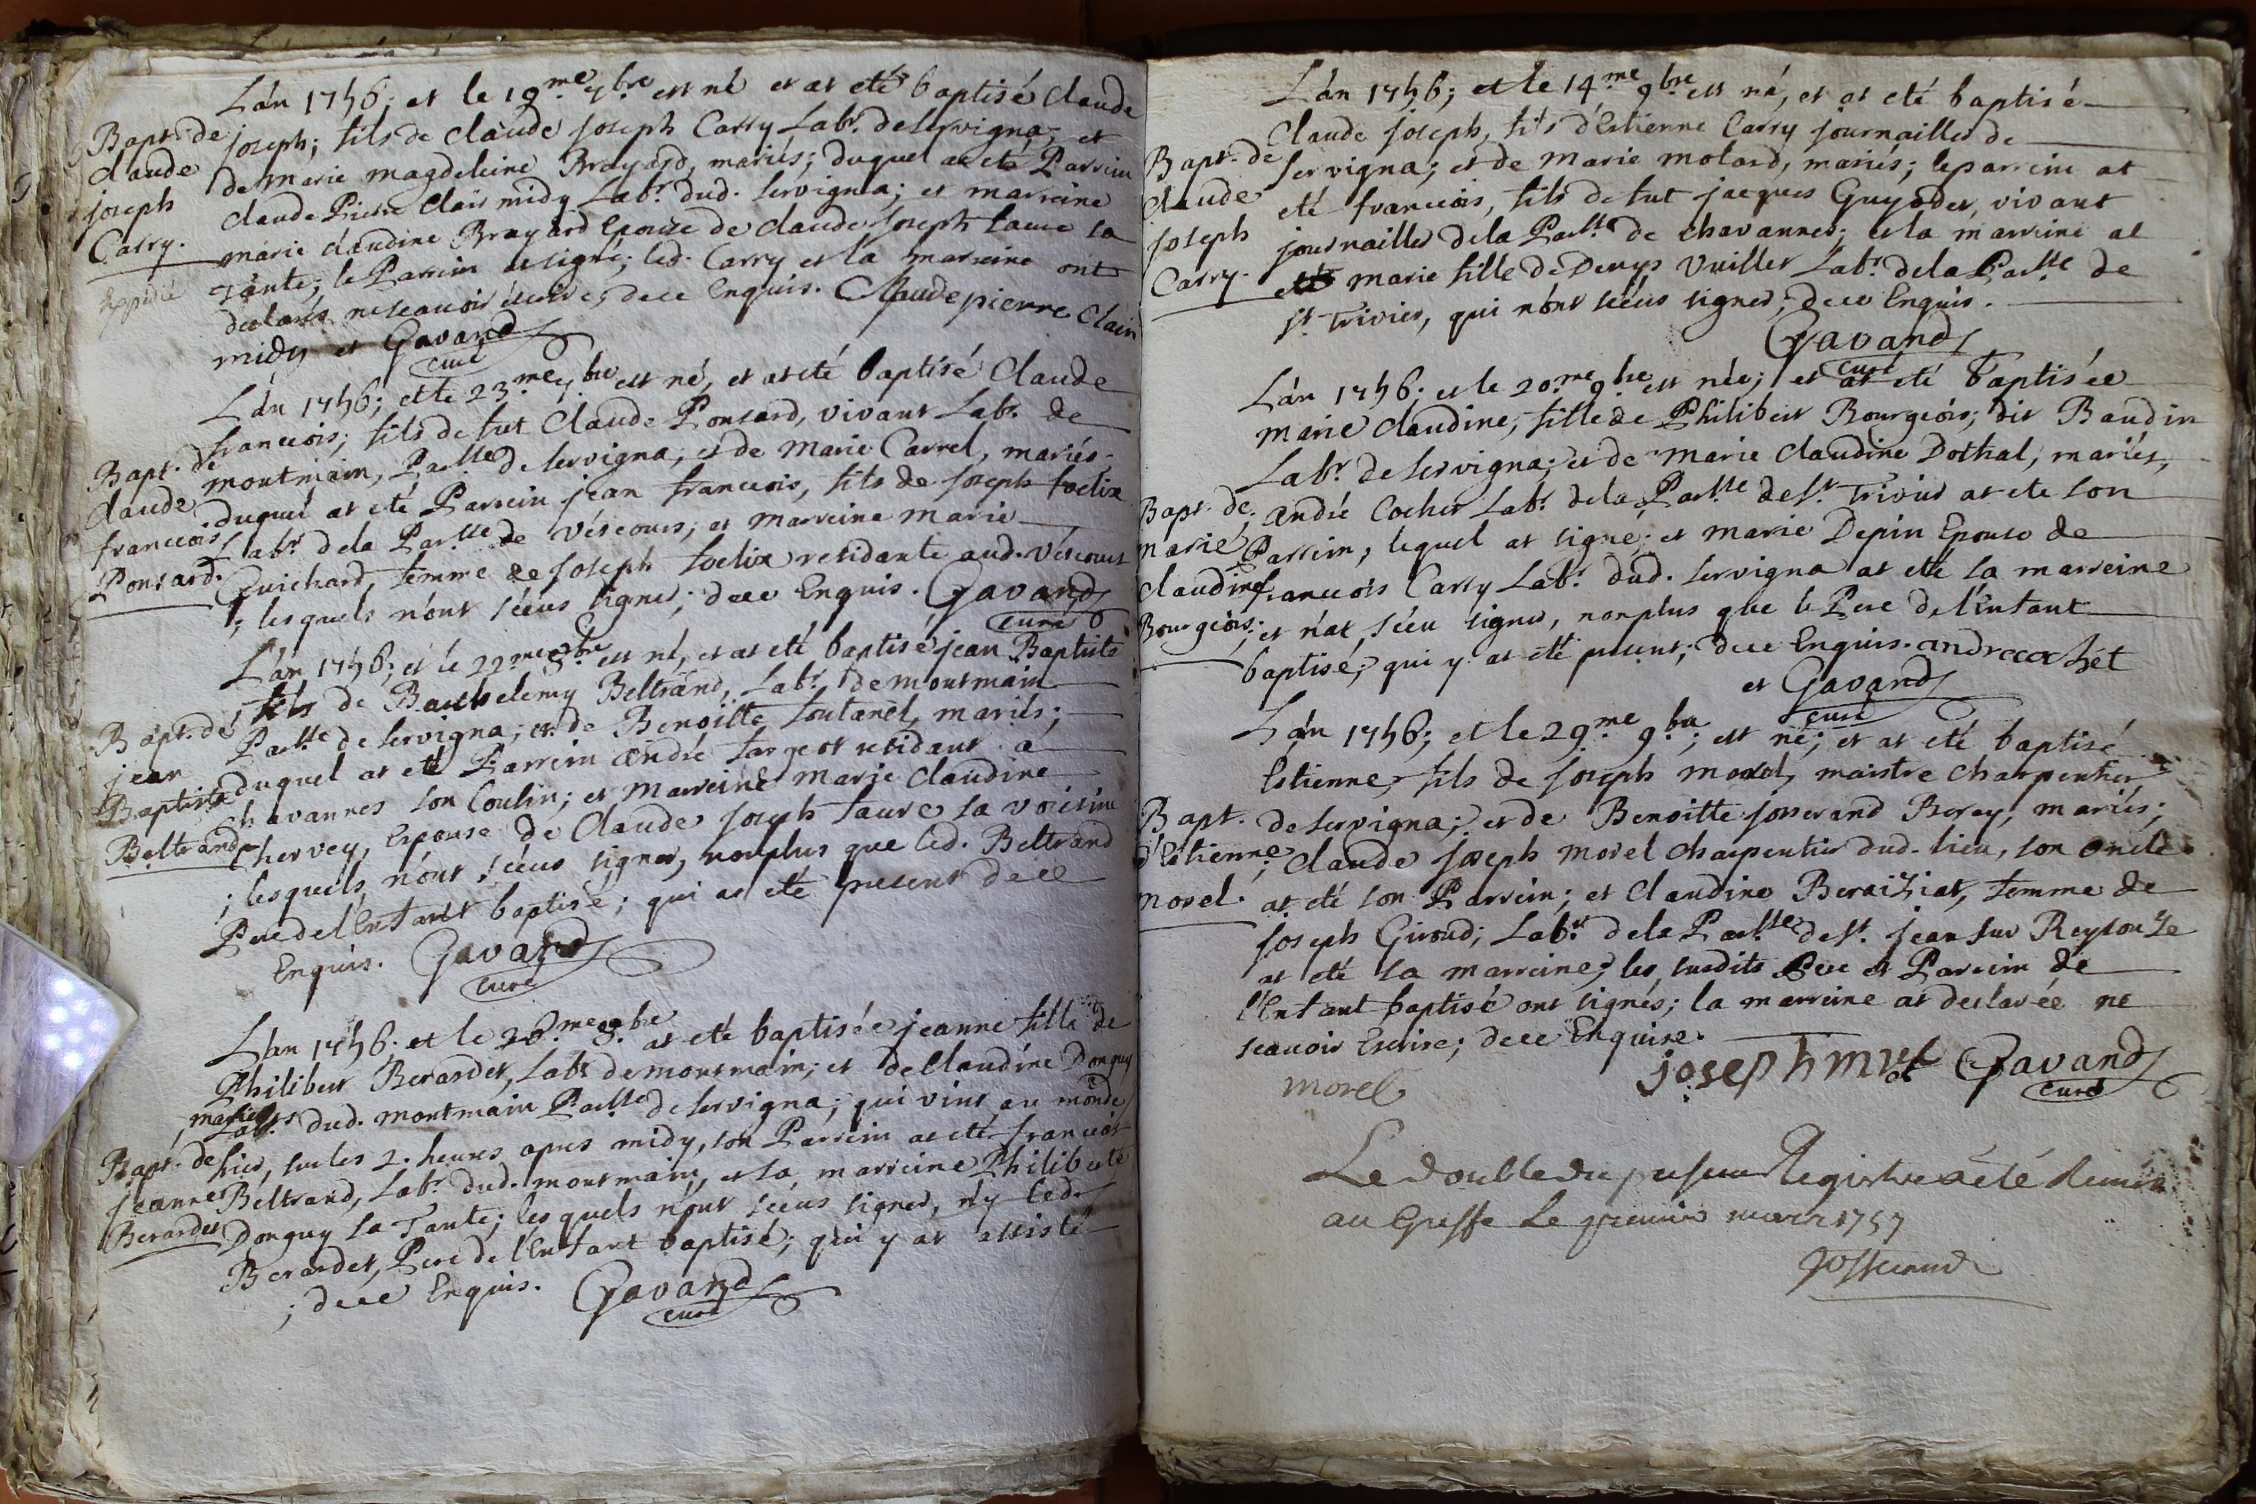 L'án 1756; et le 19.me 7.bre est né et at eté baptisé Claude
joseph; fils de claude joseph Carry Lab.r de servigna; et
de marie magdeleine Brayard, mariés; duquel at eté Parrein
claude Pierre Clair midy Lab.r dud. servigna; et marreine
marie claudine Brayard Epouse de claude joseph faure sa
Tante; le Parrein at signé; led. Carry et la marreine ont
declarés ne sçauoir écrire, de ce Enquis. Claude pierre Clair
midy et Gavand
curé
Bapt. de
claude
joseph
Carry.
L'án 1756; et le 23.me 7.bre est né, et at eté baptisé Claude
francois; fils de fut Claude Ponsard, vivant Lab.r de
montmain, Par.sse de servigna, et de Marie Carrel, mariés.
duquel at eté Parrein jean francois, fils de joseph foelix
Lab.r de la Par.sse de Véscours; et marreine marie
Guichard, femme de joseph foelix residante aud. Véscours
; lesquels n'ont sçéus signer; de ce Enquis. Gavand
curé
Bapt. de
claude
francois
Ponsard.
L'án 1756; et le 22.me 8.bre est né, et at eté baptisé jean Baptiste
fils de Barthelemy Beltrand, Lab.r de montmain
Par.sse de servigna; et de Benoitte Toutanel, mariés;
duquel at eté Parrein André farjeot residant à
chavannes son Cousin; et marreine marie claudine
Chervey, Espouse de Claude joseph faure sa voisine
; lesquels n'ont sçéus signer, nonplus que led. Beltrand
Pere de l'Enfant baptisé; qui at eté present de ce
Enquis. Gavand
curé
Bapt. de
jean
Baptiste
Beltrand
L'an 1756; et le 26.me 8.bre at eté baptisée jeanne fille de
Philibert Berardet, Lab.r de montmain; et de Claudine Donguy
mariés
Lab.rs dud. montmain Par.sse de servigna; qui vint au monde
hier, sur les 2. heures apres midy, son Parrein at eté francois
Beltrand, Lab.r dud. montmain, et sa marreine Philiberte
Donguy sa Tante; les quels n'ont sçéus signer, n'y led.
Berardet, Pere de l'Enfant baptisé; qui y at assisté
; de ce Enquis. Gavand
curé
Bapt. de
jeanne
Berardet
L'án 1756; et le 14.me 9.bre est né, et at eté baptisé
Claude joseph, fils d'Estienne Carry journaillier de
servigna; et de marie molard, mariés; le parrein at
eté francois, fils de fut jacques Guyodet, vivant
journaillier de la Par.sse de chavannes; et la marreine at
eté marie fille de Denys Vuillet Lab.r de la Par.sse de
st. Trivier, qui n'ont sçéus signer; de ce Enquis.
Gavand
curé
Bapt. de
claude
joseph
Carry.
L'án 1756; et le 20.me 9.bre est née; et at eté baptisée
marie claudine; fille de Philibert Bourgeois; dit Baudin
Lab.r de servigna; et de marie claudine Dothal, mariés,
André Cochet Lab.r de la Par.sse de st. Trivier at eté son
Parrein, lequel at signé; et marie Depin Epouse de
francois Carry Lab.r dud. servigna at eté sa marreine
et n'at sçéu signer, nonplus que le Pere de l'Enfant
baptisé; qui y at eté present; de ce Enquis.
et Gavand
curé
Bapt. de
marie
claudine
Bourgeois.
L'án 1756; et le 29.me 9.bre; est né; et at eté baptisé
Estienne, fils de joseph morel, maistre charpentier
de servigna; et de Benoitte josserand Berey, mariés;
Claude joseph morel charpentier dud. lieu, son oncle
at eté son Parrein; et claudine Beraiziat, femme de
joseph Giroud; Lab.r de la Par.sse de st. jean sur Reysouze
at eté sa marreine; les susdits Pere et Parrein de
l'Enfant baptisé ont signés; la marreine at declarée ne
sçauoir Escrire; de ce Enquise.
morel joseph Gavand
curé
Bapt.
d'Estienne
morel.
Le double du present Registre a été Remis
au Greffe Le premier mars 1757
Josserand